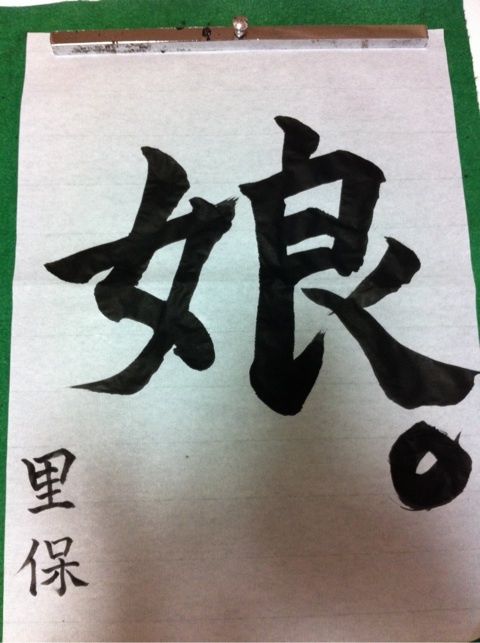 娘。
里保